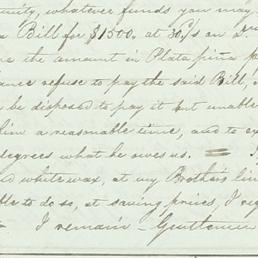 unity, whatever funds you may
a Bill for $1500, at 30 d/s on
re the amount in Plata piña
ance refuse to pay the said Bill,
be disposed to pay it but unable
him a reasonable time, and to
degrees what he owes us. =
d white wax, at my Brother's
le to do so, at saving prices, I
I remain - Gentlemen